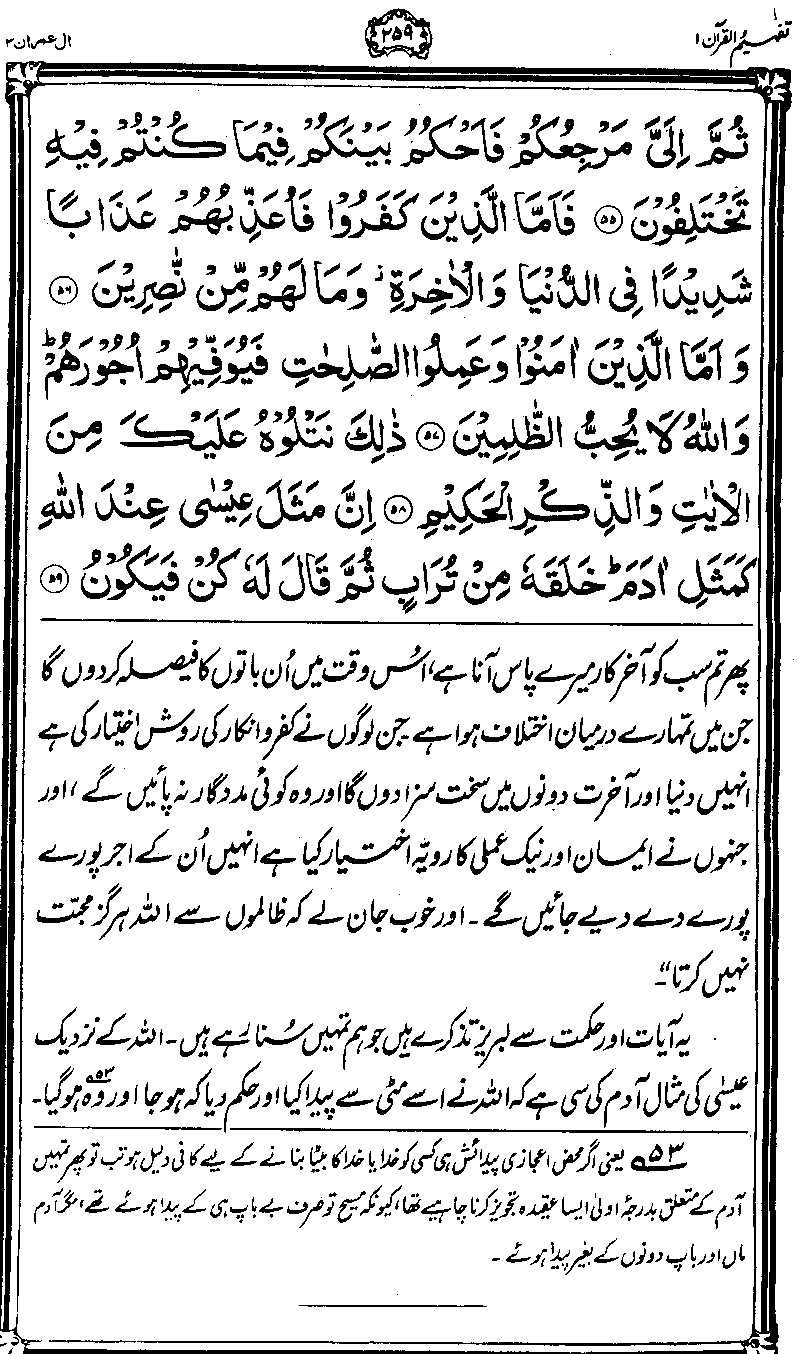 تفہیم القرآن ۱
۲۵۹
ال عمران ۳
ثُمَّ اِلَيَّ مَرْجِعُكُمْ فَاَحْكُمُ بَيْنَكُمْ فِيْمَا كُنْتُمْ فِيْهِ
تَخْتَلِفُوْنَ ﴿۵۵﴾ فَاَمَّا الَّذِيْنَ كَفَرُوْا فَاُعَذِّبُهُمْ عَذَابًا
شَدِيْدًا فِى الدُّنْيَا وَالْاٰخِرَةِ ۫ وَمَا لَهُمْ مِّنْ نّٰصِرِيْنَ ﴿۵۶﴾
وَاَمَّا الَّذِيْنَ اٰمَنُوْا وَعَمِلُوا الصّٰلِحٰتِ فَيُوَفِّيْهِمْ اُجُوْرَهُمْ ؕ
وَاللّٰهُ لَا يُحِبُّ الظّٰلِمِيْنَ ﴿۵۷﴾ ذٰلِكَ نَتْلُوْهُ عَلَيْكَ مِنَ
الْاٰيٰتِ وَالذِّكْرِ الْحَكِيْمِ ﴿۵۸﴾ اِنَّ مَثَلَ عِيْسٰى عِنْدَ اللّٰهِ
كَمَثَلِ اٰدَمَ ؕ خَلَقَهٗ مِنْ تُرَابٍ ثُمَّ قَالَ لَهٗ كُنْ فَيَكُوْنُ ﴿۵۹﴾
پھر تم سب کو آخر کار میرے پاس آنا ہے، اُس وقت میں اُن باتوں کا فیصلہ کر دوں گا
جن میں تمہارے درمیان اختلاف ہوا ہے جن لوگوں نے کفر و انکار کی روش اختیار کی ہے
انہیں دنیا اور آخرت دونوں میں سخت سزا دوں گا اور وہ کوئی مددگار نہ پائیں گے، اور
جنہوں نے ایمان اور نیک عملی کا رویّہ اختیار کیا ہے انہیں اُن کے اجر پورے
پورے دے دیے جائیں گے۔ اور خوب جان لے کہ ظالموں سے اللہ ہرگز محبّت
نہیں کرتا“۔
یہ آیات اور حکمت سے لبریز تذکرے ہیں جو ہم تمہیں سُنا رہے ہیں۔ اللہ کے نزدیک
عیسٰی کی مثال آدم کی سی ہے کہ اللہ نے اسے مٹی سے پیدا کیا اور حکم دیا کہ ہو جا اور وہ ہو گیا۔ ۵۳
۵۳ یعنی اگر محض اعجازی پیدائش ہی کسی کو خدا یا خدا کا بیٹا بنانے کے لیے کافی دلیل ہو تب تو پھر تمہیں
آدم کے متعلق بدرجۂ اولیٰ ایسا عقیدہ تجویز کرنا چاہیے تھا، کیونکہ مسیح تو صرف بے باپ ہی کے پیدا ہوئے تھے، مگر آدم
ماں اور باپ دونوں کے بغیر پیدا ہوئے۔